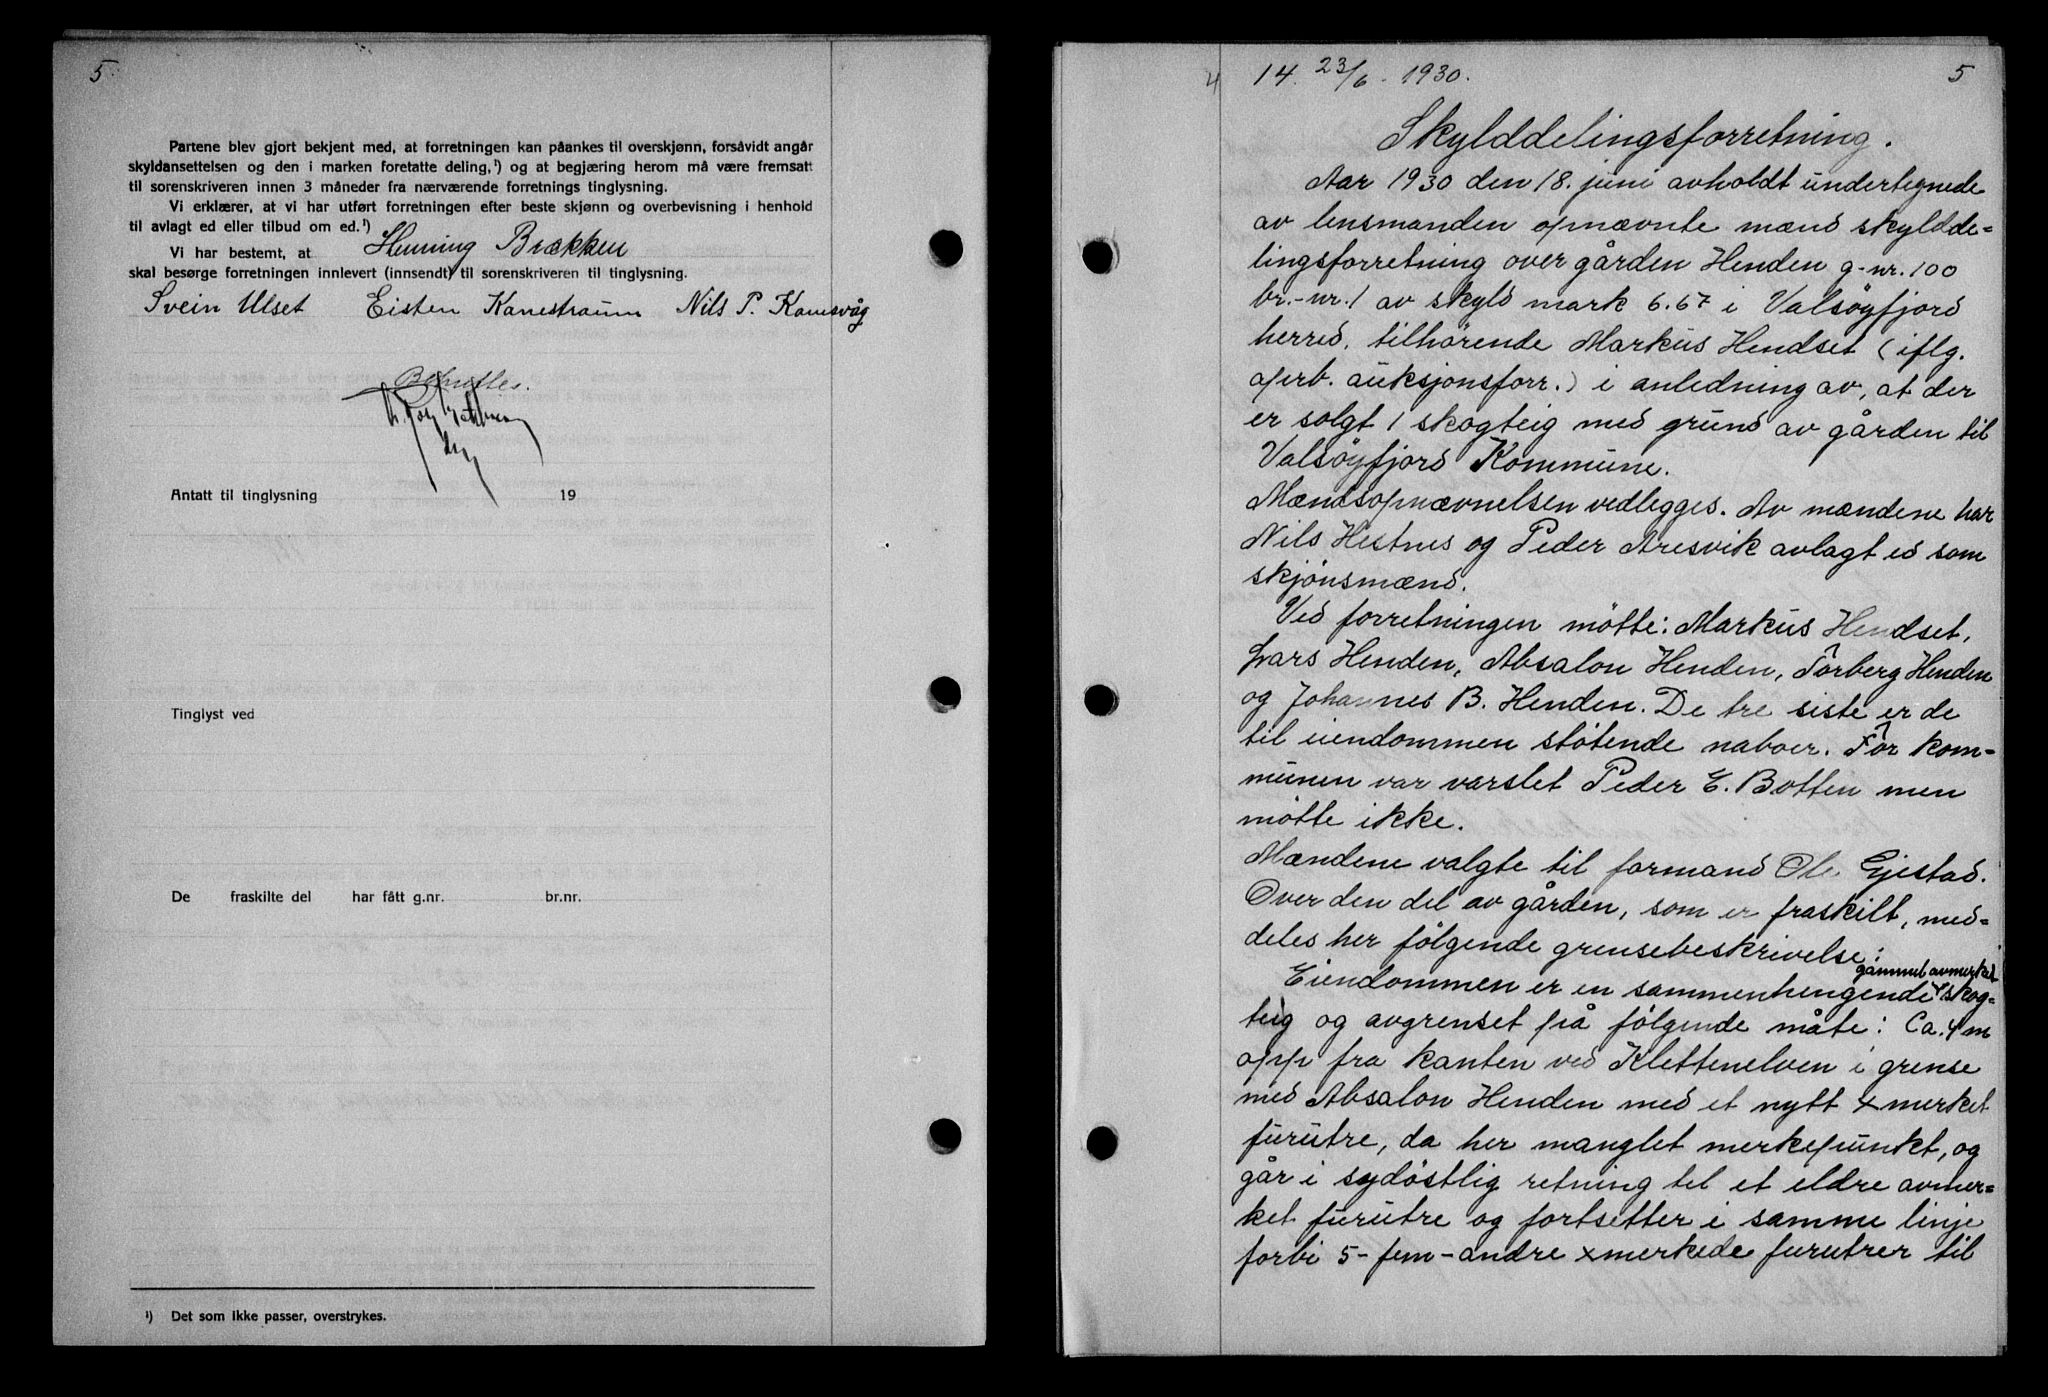 5
Partene blev gjort bekjent med, at forretningen kan påankes til overskjønn, forsåvidt angår
skyldansettelsen og den i marken foretatte deling,¹) og at begjæring herom må være fremsatt
til sorenskriveren innen 3 måneder fra nærværende forretnings tinglysning.
Vi erklærer, at vi har utført forretningen efter beste skjønn og overbevisning i henhold
til avlagt ed eller tilbud om ed.¹)
Vi har bestemt, at Henning Brækken
skal besørge forretningen innlevert (innsendt) til sorenskriveren til tinglysning.
Svein Ulset Eisten Kanestraum Nils P. Kanesvåg
Antatt til tinglysning 19
Tinglyst ved
De fraskilte del har fått g.nr. br.nr.
¹) Det som ikke passer, overstrykes.
4 14. 23/6. 1930. 5
Skylddelingsforretning.
Aar 1930 den 18. juni avholdt undertegnede
av lensmanden opnævnte mænd skyldde=
lingsforretning over gården Henden g-nr. 100
br.-nr. 1 av skyld mark 6.67 i Valsøyfjord
herred, tilhørende Markus Hendset (iflg.
oprb. auksjonsforr.) i anledning av, at der
er solgt 1 skogteig med grund av gården til
Valsøyfjord Kommune.
Mændsopnævnelsen vedlegges. Av mændene har
Nils Hestnes og Peder Aresvik avlagt ed som
skjønsmænd.
Ved forretningen møtte: Markus Hendset,
Lars Henden, Absalon Henden, Torberg Henden
og Johannes B. Henden. De tre siste er de
til eiendommen støtende naboer. For kom=
munen var varslet Peder E. Botten men
møtte ikke.
Mændene valgte til formand Ole Gjestad.
Over den del av gården, som er fraskilt, med=
deles her følgende grensebeskrivelse:
gammel avmerket
Eiendommen er en sammenhengende skog=
teig og avgrenset på følgende måte: Ca. 4 m
opp fra kanten ved Klettenelven i grense
med Absalon Henden med et nytt x merket
furutre, da her manglet merkepunkt, og
går i sydøstlig retning til et eldre avmer=
ket furutre og fortsetter i samme linje
forbi 5 - fem - andre xmerkede furutrer til